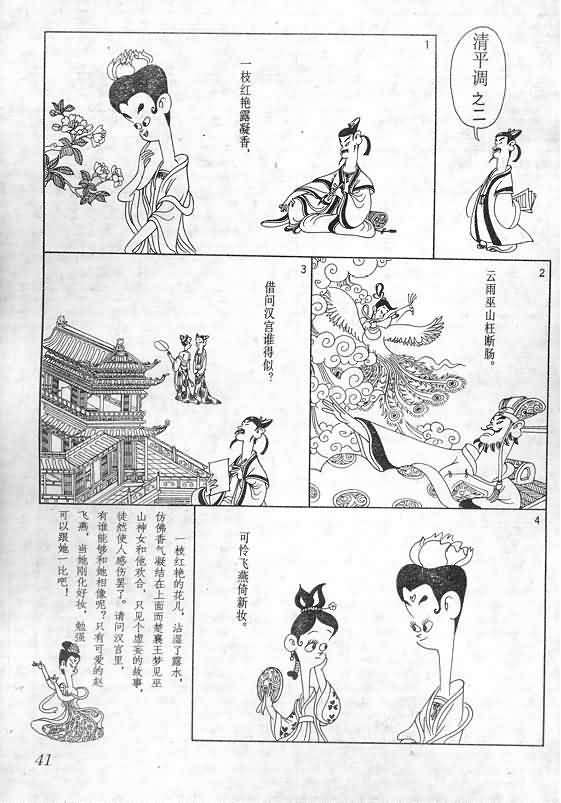 清平调之二
1
一枝红艳露凝香，
2
云雨巫山枉断肠。
3
借问汉宫谁得似？
4
可怜飞燕倚新妆。
一枝红艳的花儿，沾湿了露水，
仿佛香气凝结在上面而楚襄王梦见巫
山神女和他欢合，只见个虚妄的故事，
徒然使人感伤罢了。请问汉宫里，
有谁能够和她相像呢？只有可爱的赵
飞燕，当她刚化好妆，勉强
可以跟她一比吧！
41